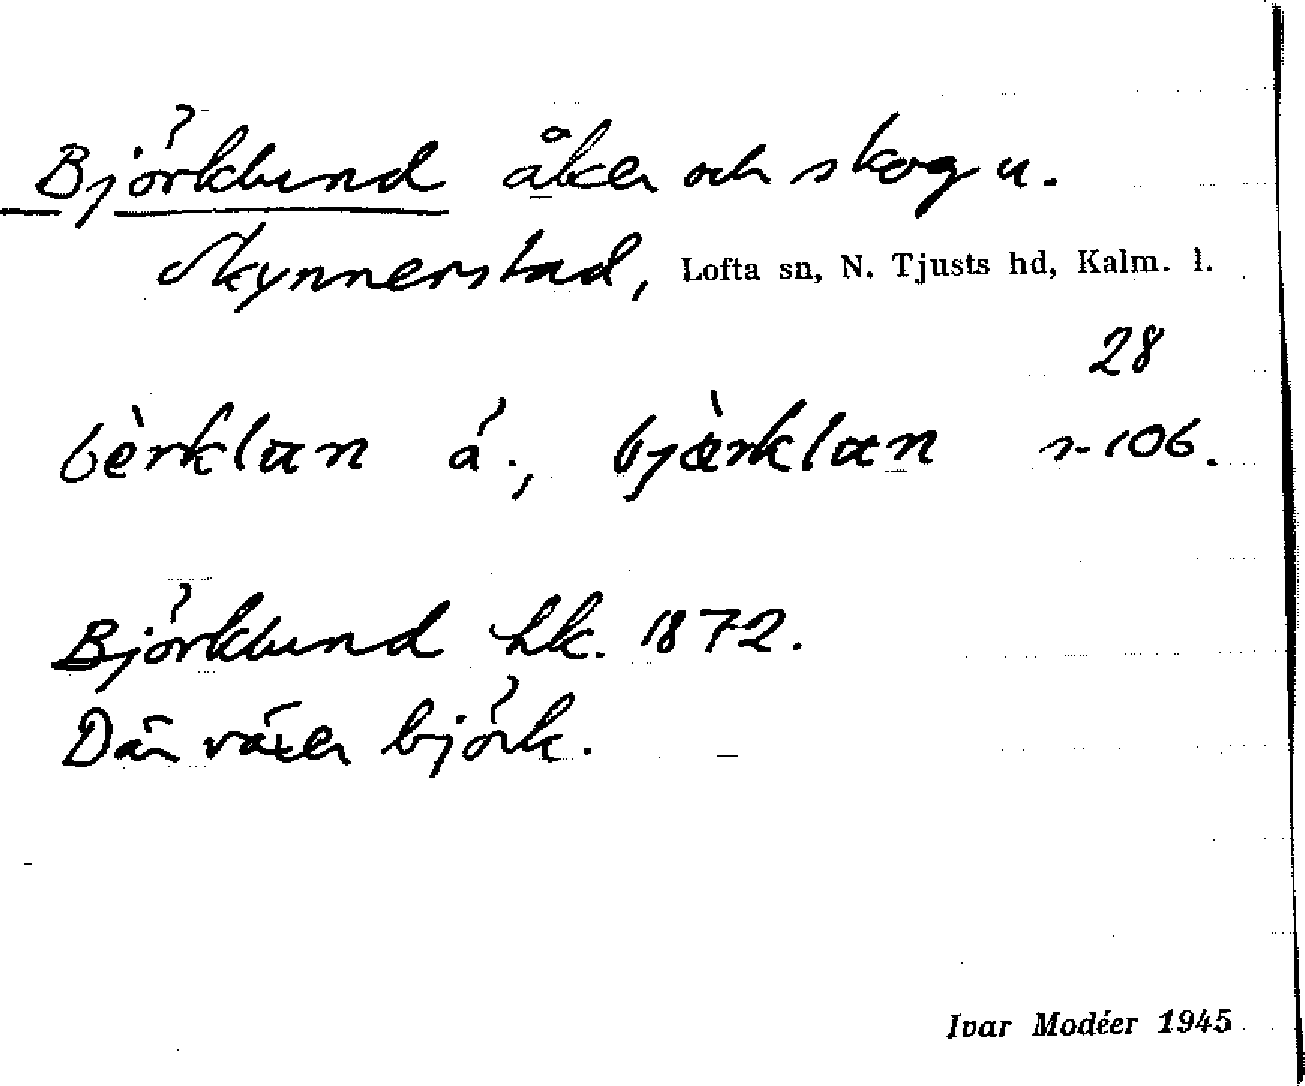 Björklund åker och skog u.
Skynnerstad, Lofta sn, N. Tjusts hd, Kalm. l.
28
bèrklan á., bjèrklan n-106.
Björklund hk. 1872.
Där växer björk.
Ivar Modéer 1945